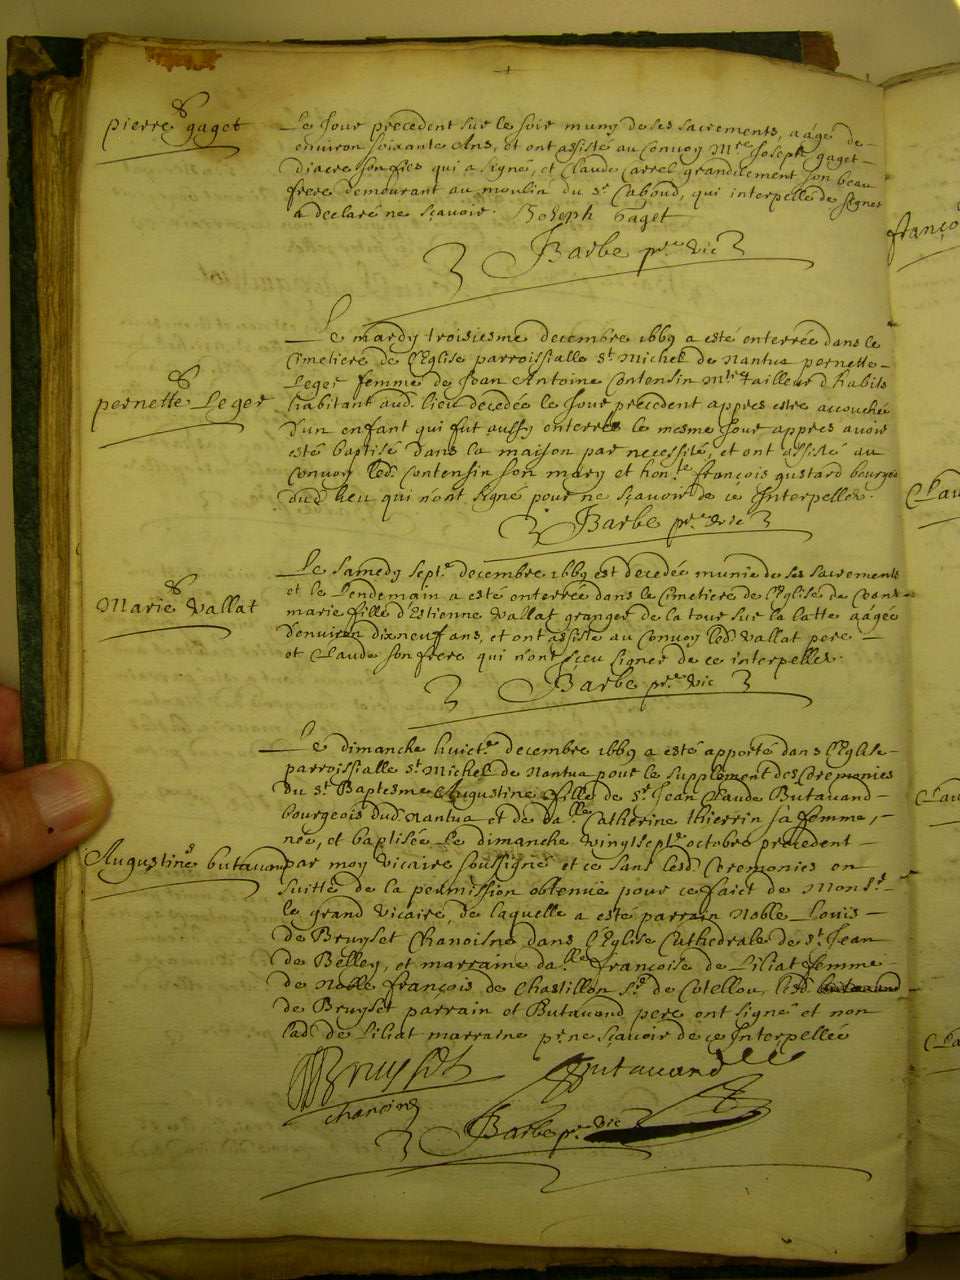 pierre gaget
Le Jour precedent sur le soir muny de ses sacrements, aagé de
environ soixante Ans, et ont assisté au Convoy Mre Joseph gaget
diacre son fils qui a signé, et Claude Carrel grandclement son beau
frere demeurant au moulin du Sr Caboud, qui interpellé de signer
a declaré ne sçavoir. Joseph Gaget
Barbe pre vic
pernette Leger
Le mardy troisiesme decembre 1669 a esté enterrée dans le
Cimetiere de l'Eglise parroissialle St Michel de Nantua pernette
Leger femme de Jean Antoine Contensin Mre tailleur d'habits
habitant aud. lieu decedée le Jour precedent appres estre accouchée
d'un enfant qui fut aussy enterré le mesme Jour appres avoir
esté baptisé dans la maison par necessité, et ont assisté au
Convoy led. Contensin son mary et hon.le françois gustard bourgeo
dud. lieu qui n'ont signé pour ne sçavoir de ce Interpellés.
Barbe pre vic
Marie Vallat
Le Samedy sept.e decembre 1669 est decedée munie de ses sacrements
et le Lendemain a esté enterrée dans le Cimetiere de l'Eglise de ceans
marie fille d'Estienne Vallat granger de la tour sur la latte aagée
d'environ dixneuf ans, et ont assisté au Convoy led. Vallat pere
et Claude son frere qui n'ont sçeu signer de ce interpellés.
Barbe pre vic
Augustine butavand
Le dimanche huict.e decembre 1669 a esté apporté dans l'Eglise
parroissialle St Michel de Nantua pour le supplement des Ceremonies
du St Baptesme Augustine fille de Sr Jean Claude Butavand
bourgeois dud. Nantua et de da.lle Catherine thierrin sa femme,
née, et baptisée le dimanche vingtsept.e octobre precedent
par moy vicaire soussigné et ce sans lesd. Ceremonies en
suitte de la permission obtenue pour ce faict de Monsr
le grand Vicaire, de laquelle a esté parrain Noble Louis
de Bruyset Chanoisne dans l'Eglise Cathedrale de St Jean
de Belley, et marraine da.lle françoise de Liliat femme
de Noble françois de Chastillon Sr de Cotellou, led. butavand
de Bruyset parrain et Butavand pere ont signé et non
lad. de Liliat marraine pr ne sçavoir de ce Interpellée
Bruyset Butavand
chanoine
Barbe pre vic
franço